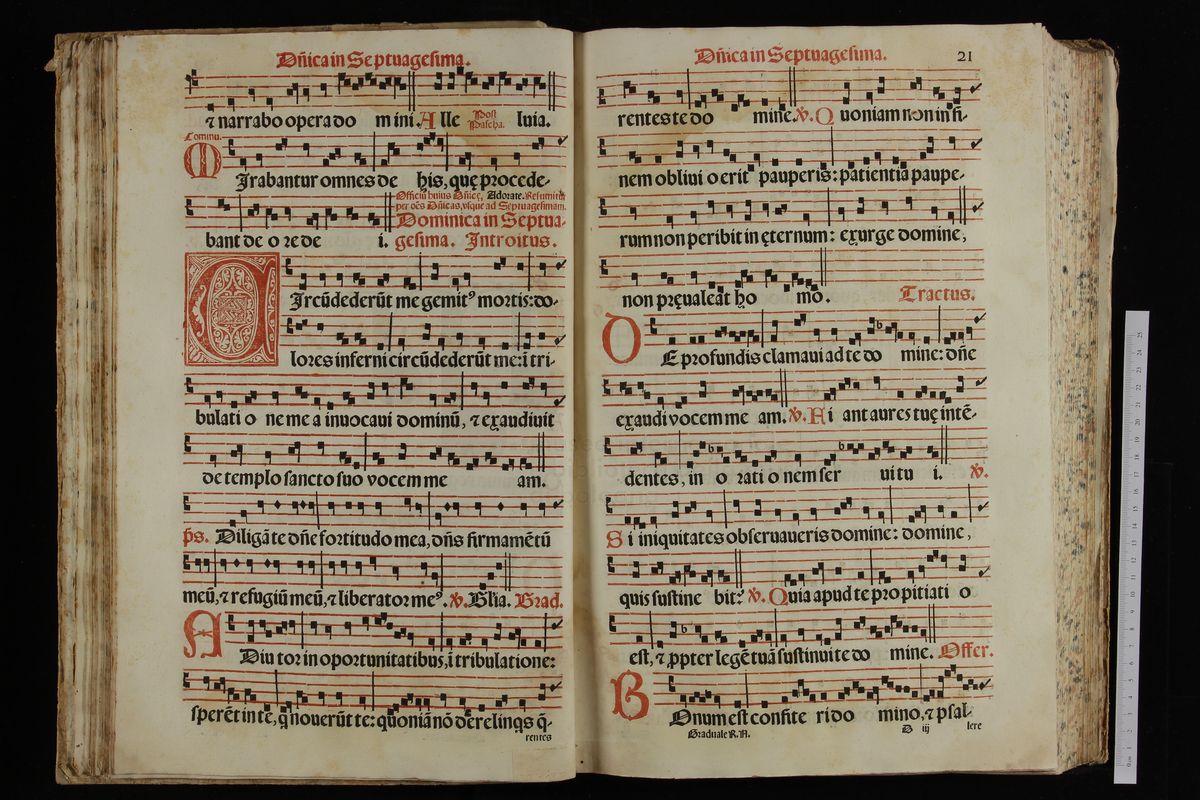 Dñica in Septuagesima.
⁊ narrabo opera do mini. Alle Post Pascha. luia.
Commu.
MIrabantur omnes de his, quę procede-
Officiũ huius Dñicę, Adorate. Resumitur
per oẽs Dñicas, vsque ad Septuagesimam.
bant de o re de i. Dominica in Septua-
gesima. Introitus.
CIrcũdederũt me gemitꝰ mortis: do-
lores inferni circũdederũt me: ĩ tri-
bulati o ne mea inuocaui dominũ, ⁊ exaudiuit
de templo sancto suo vocem me am.
p̃s. Diligã te dñe fortitudo mea, dñs firmamẽtũ
meũ, ⁊ refugiũ meũ, ⁊ liberator meꝰ. ℣. Glĩa. Grad.
ADiutor in oportunitatibus, ĩ tribulatione:
sperẽt in te, q̃ nouerũt te: quoniã nõ derelinq̃s q̃-
rentes
Dñica in Septuagesima. 21
rentes te do mine. ℣. Quoniam non in fi-
nem obliui o erit pauperis: patientia paupe-
rum non peribit in ęternum: exurge domine,
non pręualeat ho mo. Tractus.
DE profundis clamaui ad te do mine: dñe
exaudi vocem me am. ℣. Fi ant aures tuę intẽ-
dentes, in o rati o nem ser ui tu i. ℣.
Si iniquitates obseruaueris domine: domine,
quis sustine bit? ℣. Quia apud te propitiati o
est, ⁊ ꝓpter legẽ tuã sustinui te do mine. Offer.
BOnum est confite ri do mino, ⁊ psal-
Graduale R.N. D iij lere